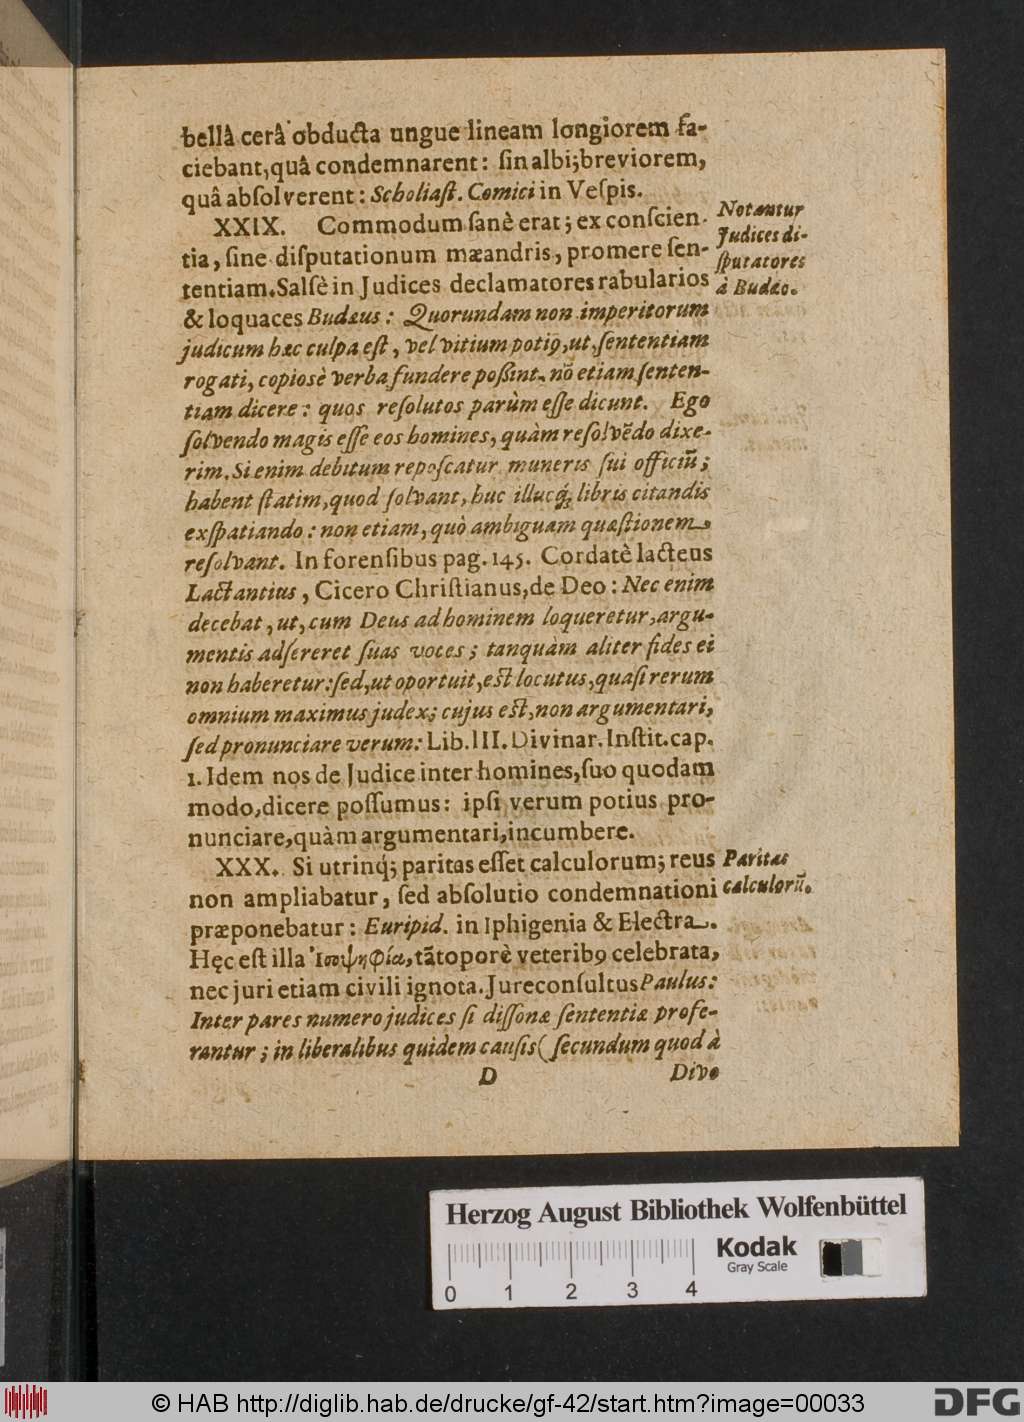 bellâ cerâ obducta ungue lineam longiorem fa-
ciebant, quâ condemnarent: ſin albi; breviorem,
quâ abſolverent: Scholiaſt. Comici in Veſpis.
XXIX. Commodum ſanè erat; ex conſcien-
tia, ſine diſputationum mæandris, promere ſen-
tentiam. Salſè in Judices declamatores rabularios
& loquaces Budæus: Quorundam non imperitorum
judicum hæc culpa eſt, vel vitium potiꝰ, ut, ſententiam
rogati, copiosè verba fundere poßint, nõ etiam ſenten-
tiam dicere: quos reſolutos parùm eſſe dicunt. Ego
ſolvendo magis eſſe eos homines, quàm reſolvẽdo dixe-
rim. Si enim debitum repoſcatur muneris ſui officiũ;
habent ſtatim, quod ſolvant, huc illucq́; libris citandis
exſpatiando: non etiam, quò ambiguam quæſtionem
reſolvant. In forenſibus pag. 145. Cordatè lacteus
Lactantius, Cicero Chriſtianus, de Deo: Nec enim
decebat, ut, cum Deus ad hominem loqueretur, argu-
mentis adſereret ſuas voces; tanquàm aliter fides ei
non haberetur: ſed, ut oportuit, eſt locutus, quaſi rerum
omnium maximus judex; cujus eſt, non argumentari,
ſed pronunciare verum: Lib. III. Divinar. Inſtit. cap.
1. Idem nos de Judice inter homines, ſuo quodam
modo, dicere poſſumus: ipſi verum potius pro-
nunciare, quàm argumentari, incumbere.
XXX. Si utrinq́; paritas eſſet calculorum; reus
non ampliabatur, ſed abſolutio condemnationi
præponebatur: Euripid. in Iphigenia & Electra.
Hęc eſt illa Ἰσοψηφία, tãtoperè veteribꝰ celebrata,
nec juri etiam civili ignota. Jureconſultus Paulus:
Inter pares numero judices ſi diſſonæ ſententiæ profe-
rantur; in liberalibus quidem cauſis (ſecundum quod à
D Divo
Notantur
Judices di-
ſputatores
à Budæo.
Paritas
calculorũ.
Herzog August Bibliothek Wolfenbüttel
Kodak
Gray Scale
0 1 2 3 4
© HAB http://diglib.hab.de/drucke/gf-42/start.htm?image=00033
DFG